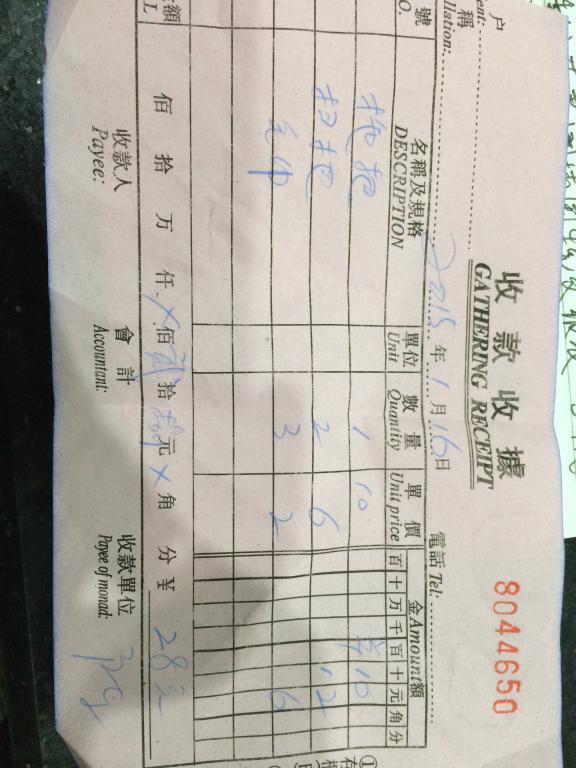 收款收據
GATHERING RECEIPT
8044650
2015年1月16日
電話 Tel:
號 名稱及規格 單位 數量 單價 金Amount額
O. DESCRIPTION Unit Quantity Unit price 百十万千百十元角分
拖把 1 10 ¥10
扫把 2 6 12
毛巾 3 2 6
額 佰拾万仟×佰贰拾捌元×角分¥28元
收款人 會計 收款單位
Payee: Accountant: Payee of monad: